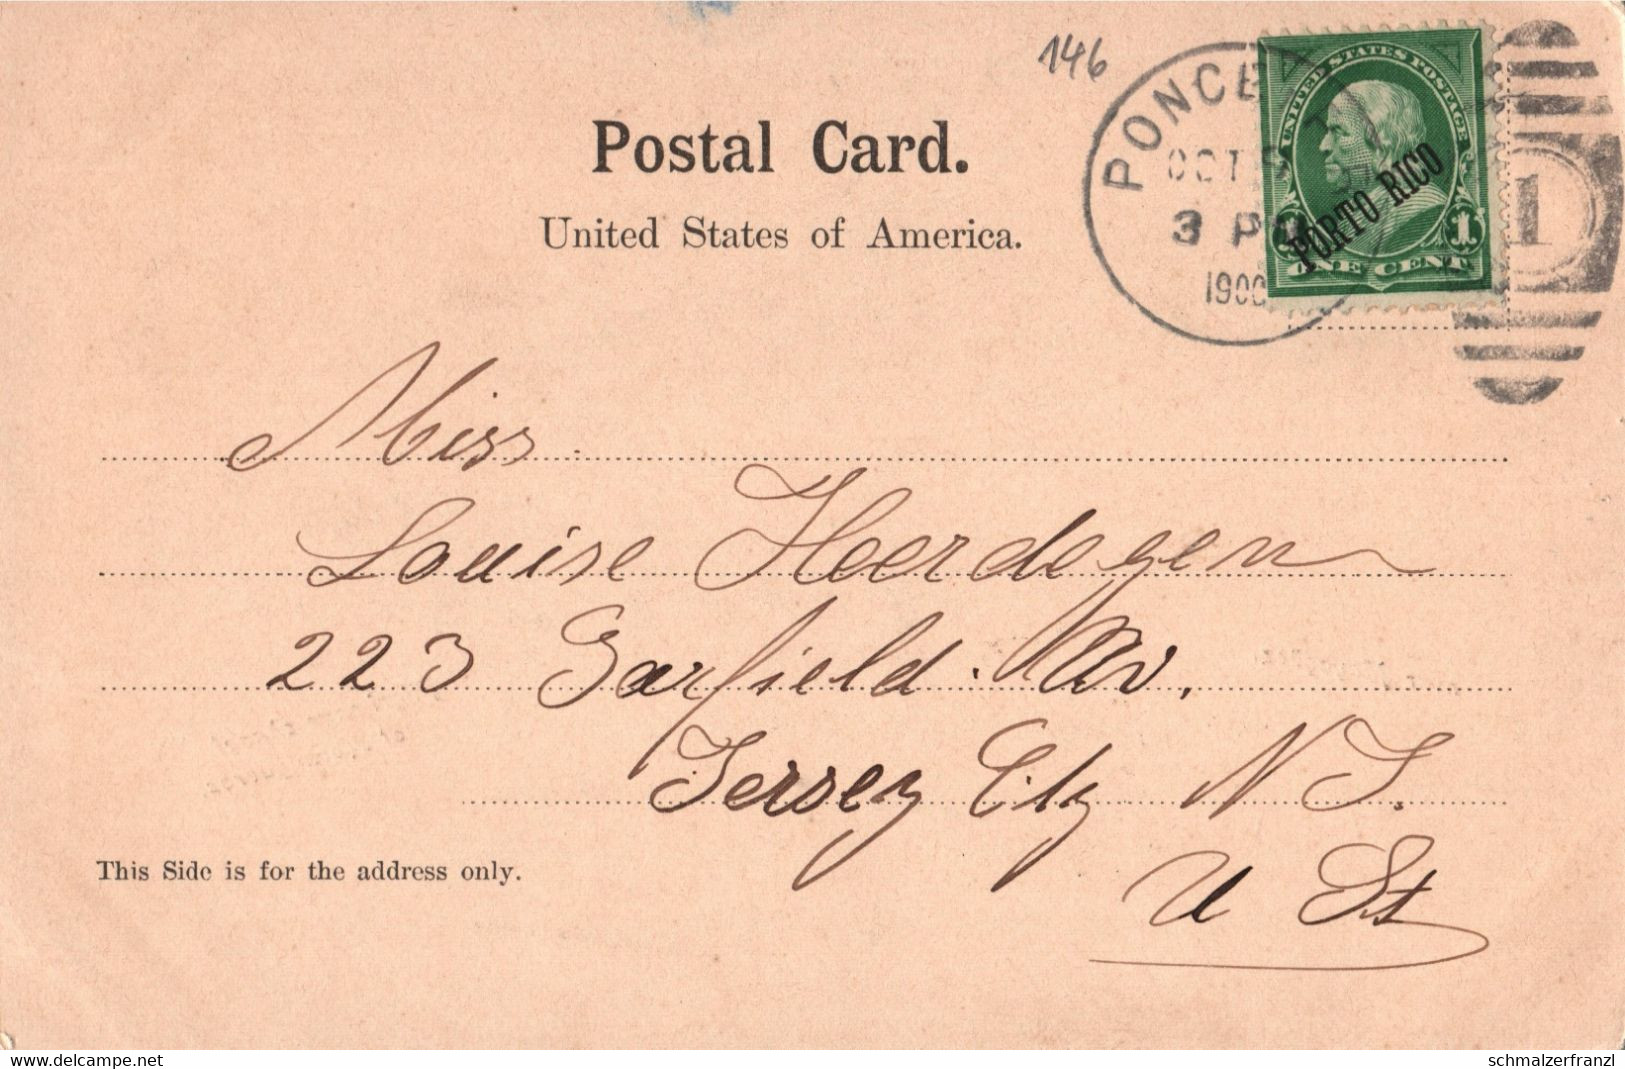 146
PONCE
OCT 9
3 P
1900
UNITED STATES POSTAGE
PORTO RICO
1
ONE CENT
1
Postal Card.
United States of America.
Miss
Louise Heerdegen
223 Garfield Av.
Jersey City N J.
This Side is for the address only.
U St
www.delcampe.net
schmalzerfranzl